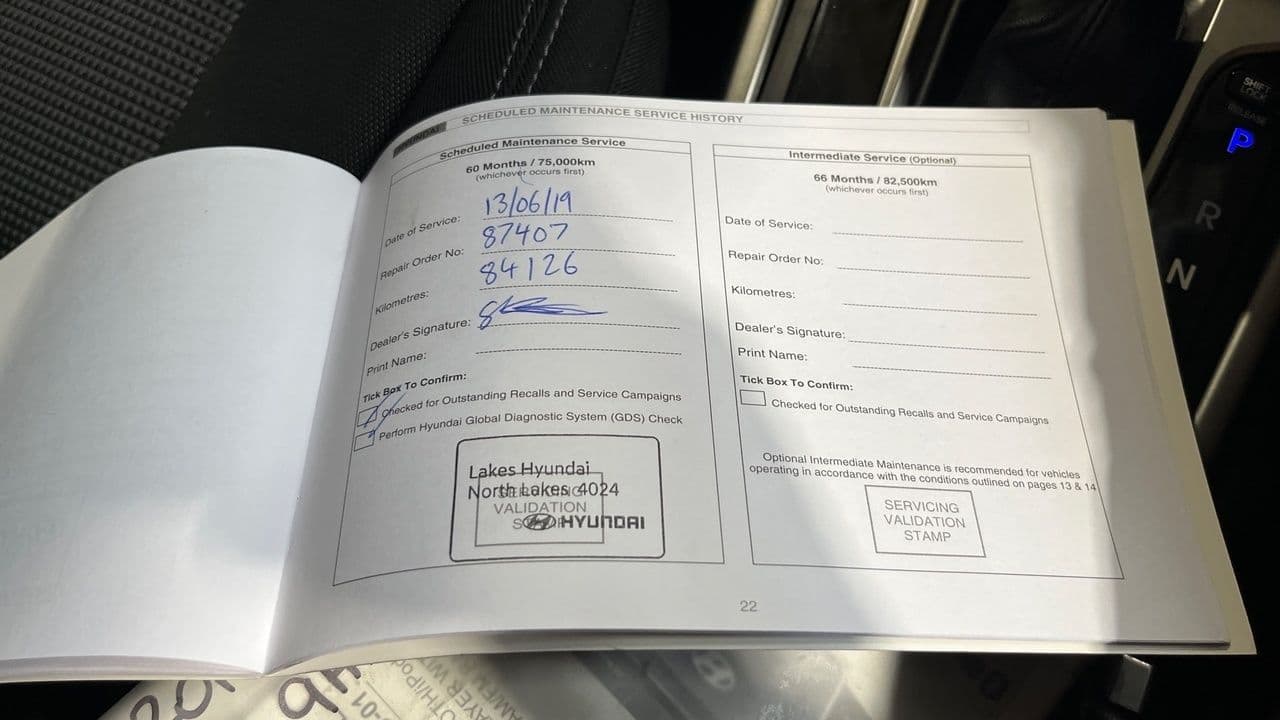 HYUNDAI
SCHEDULED MAINTENANCE SERVICE HISTORY
Scheduled Maintenance Service
60 Months / 75,000km
(whichever occurs first)
Date of Service: 13/06/19
Repair Order No: 87407
Kilometres: 84126
Dealer's Signature:
Print Name:
Tick Box To Confirm:
Checked for Outstanding Recalls and Service Campaigns
Perform Hyundai Global Diagnostic System (GDS) Check
Lakes Hyundai
North Lakes 4024
SERVICING
VALIDATION
STAMP
HYUNDAI
Intermediate Service (Optional)
66 Months / 82,500km
(whichever occurs first)
Date of Service:
Repair Order No:
Kilometres:
Dealer's Signature:
Print Name:
Tick Box To Confirm:
Checked for Outstanding Recalls and Service Campaigns
Optional Intermediate Maintenance is recommended for vehicles
operating in accordance with the conditions outlined on pages 13 & 14
SERVICING
VALIDATION
STAMP
22
SHIFT
LOCK
RELEASE
P
R
N